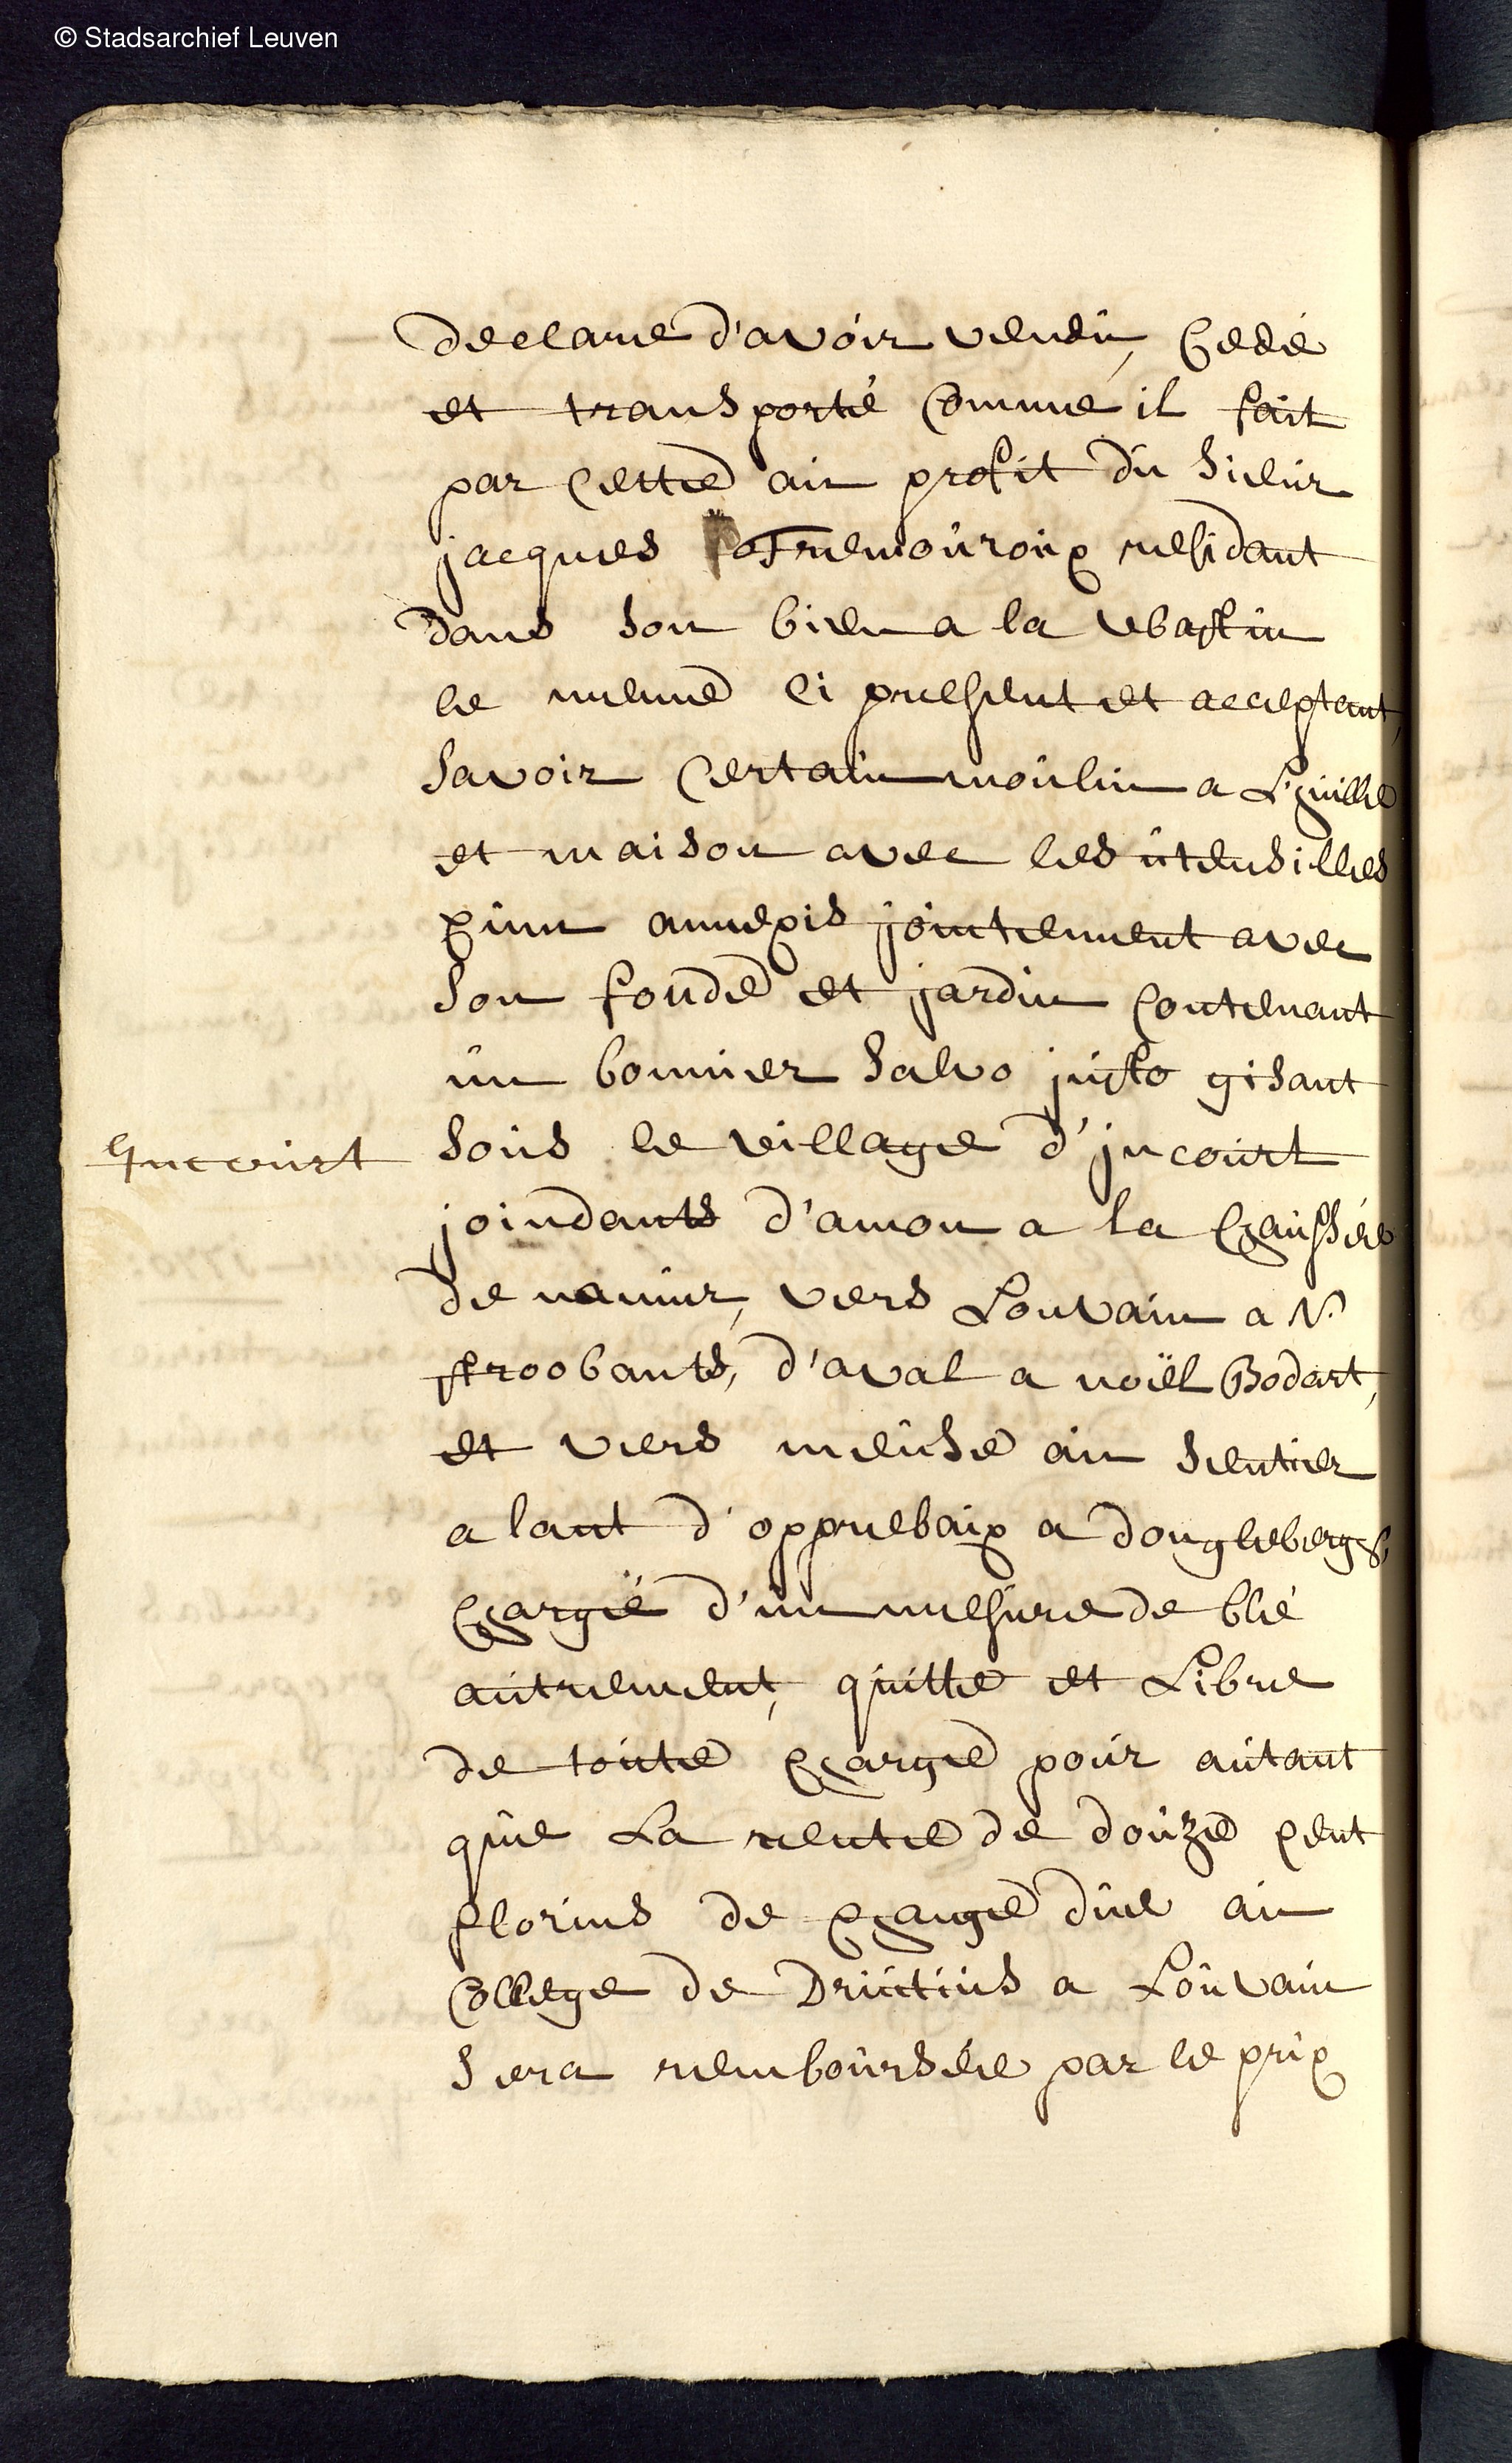 © Stadsarchief Leuven
declare d'avoir vendu, cedé
et transporté comme il fait
par cette au profit du sieur
jacques Fremouroux residant
dans son bien a la
le meme ci present et acceptant,
savoir certain moulin a L'huille
et maison avec les utensilles
annexis jointement avec
son fonde et jardin contenant
un bonnier salvo justo gisant
Incourt
sous le village d'jncourt
joindants d'amon a la chaussée
de namur, vers Louvain a N.
stroobants, d'aval a noël Bodart,
et vers meuse au sentier
alant d'opprebaix a dongleberg
chargé d'un mesure de blé
autrement, quitte et Libre
de toute charge pour autant
que La rente de douze cent
florins de change due au
College de Driutius a Louvain
sera remboursée par le prix